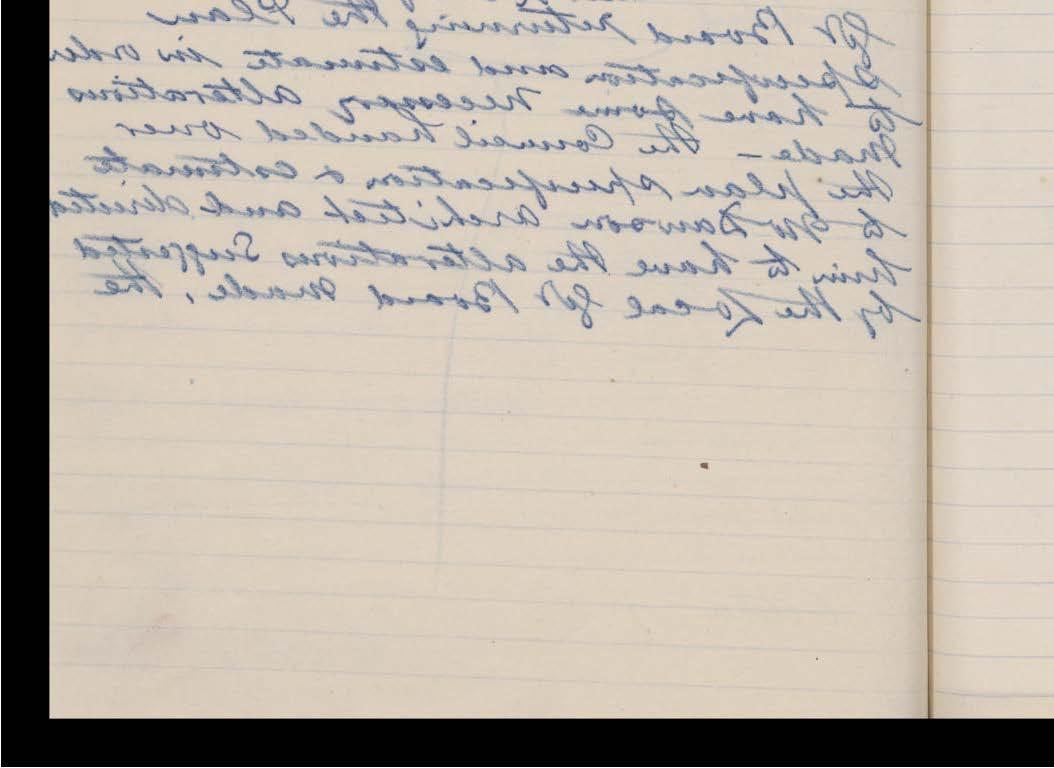 Gvt Board returning the Plan
Specification and estimate in order
to have some necessary alterations
made – The Council handed over
the plan specification & estimate
to Mr Dawson architect and directed
him to have the alterations Suggested
by the Local Gvt Board made, the